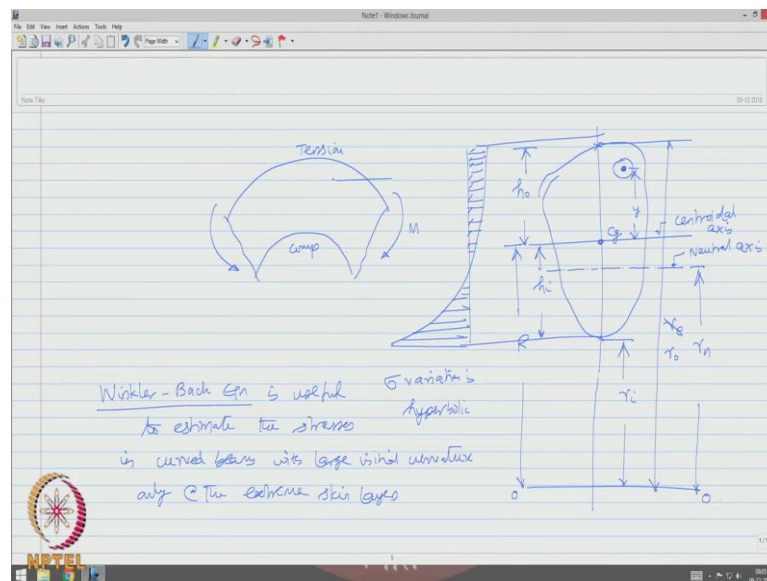 Note1 - Windows Journal
File Edit View Insert Actions Tools Help
Page Width
Note Title
09-12-2016
Tension
comp
M
h₀
hi
R
y
Cg
centroidal
axis
Neutral axis
r₀
rn
ri
O
O
σ variation is
hyperbolic
Winkler-Bach Eqn is useful
to estimate the stresses
in curved beams with large initial curvature
only @ the extreme skin layers
NPTEL
1/1
1